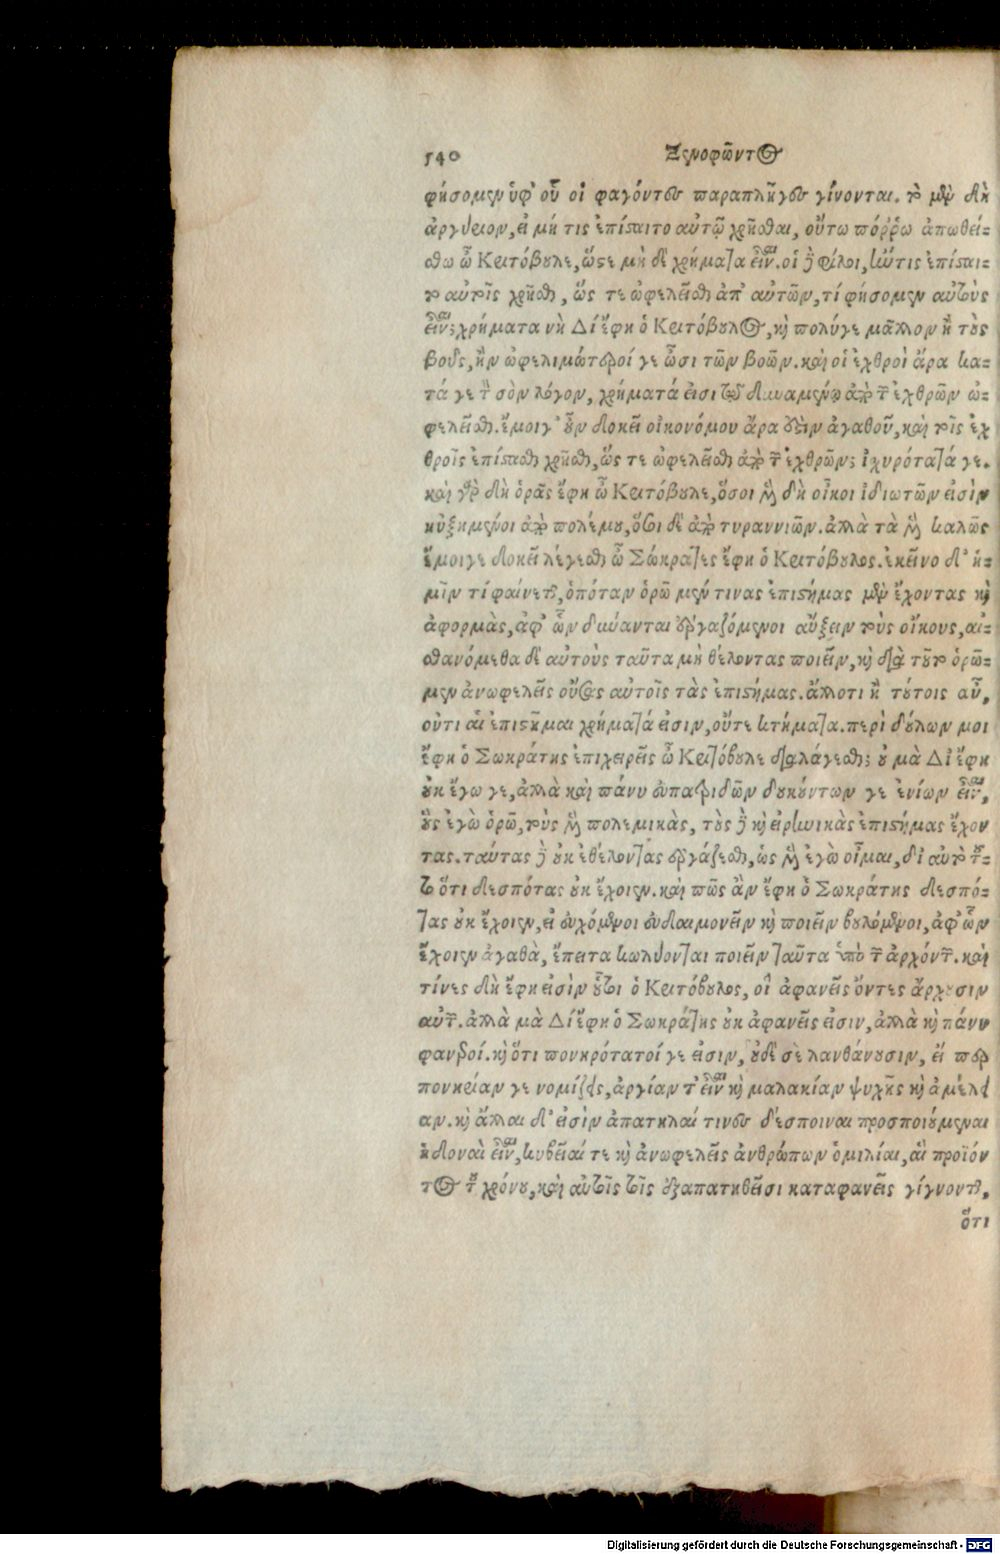 540 Ξενοφῶντος
φήσομεν ὑφ' οὗ οἱ φαγόντες παραπλῆγες γίνονται. τὸ μὲν δὴ
ἀργύριον, εἰ μή τις ἐπίσταιτο αὐτῷ χρῆσθαι, οὕτω πόῤῥω ἀπωθεί-
σθω ὦ Κριτόβουλε, ὥστε μὴ δὲ χρήματα εἶναι. οἱ δὲ φίλοι, ἤν τις ἐπίσται-
το αὐτοῖς χρῆσθαι, ὥς τε ὠφελεῖσθαι ἀπ' αὐτῶν, τί φήσομεν αὐτοὺς
εἶναι; χρήματα νὴ Δί' ἔφη ὁ Κριτόβουλος, καὶ πολύγε μᾶλλον ἢ τοὺς
βοῦς, ἢν ὠφελιμώτεροί γε ὦσι τῶν βοῶν. καὶ οἱ ἐχθροὶ ἄρα κα-
τά γε τὸν σὸν λόγον, χρήματά εἰσι τῷ δυναμένῳ ἀπὸ τῶν ἐχθρῶν ὠ-
φελεῖσθαι. ἔμοιγ' οὖν δοκεῖ οἰκονόμου ἄρα ἐστὶν ἀγαθοῦ, καὶ τοῖς ἐχ
θροῖς ἐπίστασθαι χρῆσθαι, ὥς τε ὠφελεῖσθαι ἀπὸ τῶν ἐχθρῶν; ἰχυρότατά γε.
καὶ γὰρ δὴ ὁρᾷς ἔφη ὦ Κριτόβουλε, ὅσοι μὲν δὴ οἶκοι ἰδιωτῶν εἰσὶν
ηὐξημένοι ἀπὸ πολέμου, ὅσοι δὲ ἀπὸ τυραννιῶν. ἀλλὰ τὰ μὲν καλῶς
ἔμοιγε δοκεῖ λέγεσθαι ὦ Σώκρατες ἔφη ὁ Κριτόβουλος. ἐκεῖνο δ' ἡ-
μῖν τί φαίνεται, ὁπόταν ὁρῶμέν τινας ἐπιστήμας μὲν ἔχοντας καὶ
ἀφορμὰς, ἀφ' ὧν δύνανται ἐργαζόμενοι αὔξειν τοὺς οἴκους, αἰ-
σθανόμεθα δὲ αὐτοὺς ταῦτα μὴ θέλοντας ποιεῖν, καὶ διὰ τοῦτο ὁρῶ-
μεν ἀνωφελεῖς οὔσας αὐτοῖς τὰς ἐπιστήμας. ἄλλοτι ἢ τούτοις αὖ,
οὔτι αἱ ἐπιστῆμαι χρήματά εἰσιν, οὔτε κτήματα. περὶ δούλων μοι
ἔφη ὁ Σωκράτης ἐπιχειρεῖς ὦ Κριτόβουλε διαλέγεσθαι; οὐ μὰ Δί' ἔφη
οὐκ ἔγωγε, ἀλλὰ καὶ πάνυ εὐπατριδῶν δοκούντων γε ἐνίων εἶναι,
οὓς ἐγὼ ὁρῶ, τοὺς μὲν πολεμικὰς, τοὺς δὲ καὶ εἰρηνικὰς ἐπιστήμας ἔχον
τας. ταύτας δὲ οὐκ ἐθέλοντας ἐργάζεσθαι, ὡς μὲν ἐγὼ οἶμαι, δι' αὐτὸ τοῦ-
το ὅτι δεσπότας οὐκ ἔχοιεν. καὶ πῶς ἂν ἔφη ὁ Σωκράτης δεσπό-
τας οὐκ ἔχοιεν, εἰ εὐχόμενοι εὐδαιμονεῖν καὶ ποιεῖν βουλόμενοι, ἀφ' ὧν
ἔχοιεν ἀγαθὰ, ἔπειτα κωλύονται ποιεῖν ταῦτα ὑπὸ τῶν ἀρχόντων. καὶ
τίνες δὴ ἔφη εἰσὶν οὗτοι ὁ Κριτόβουλος, οἳ ἀφανεῖς ὄντες ἄρχουσιν
αὐτῶν. ἀλλὰ μὰ Δί' ἔφη ὁ Σωκράτης οὐκ ἀφανεῖς εἰσιν, ἀλλὰ καὶ πάνυ
φανεροί. καὶ ὅτι πονηρότατοί γε εἰσιν, οὐδὲ σὲ λανθάνουσιν, εἴ περ
πονηρίαν γε νομίζεις, ἀργίαν τ' εἶναι καὶ μαλακίαν ψυχῆς καὶ ἀμέλει
αν. καὶ ἄλλαι δ' εἰσὶν ἀπατηλαί τινες δέσποιναι προσποιούμεναι
ἡδοναὶ εἶναι, κυβεῖαί τε καὶ ἀνωφελεῖς ἀνθρώπων ὁμιλίαι, αἳ προϊόν
τος τοῦ χρόνου, καὶ αὐτοῖς τοῖς ἐξαπατηθεῖσι καταφανεῖς γίγνονται,
ὅτι
Digitalisierung gefördert durch die Deutsche Forschungsgemeinschaft - DFG